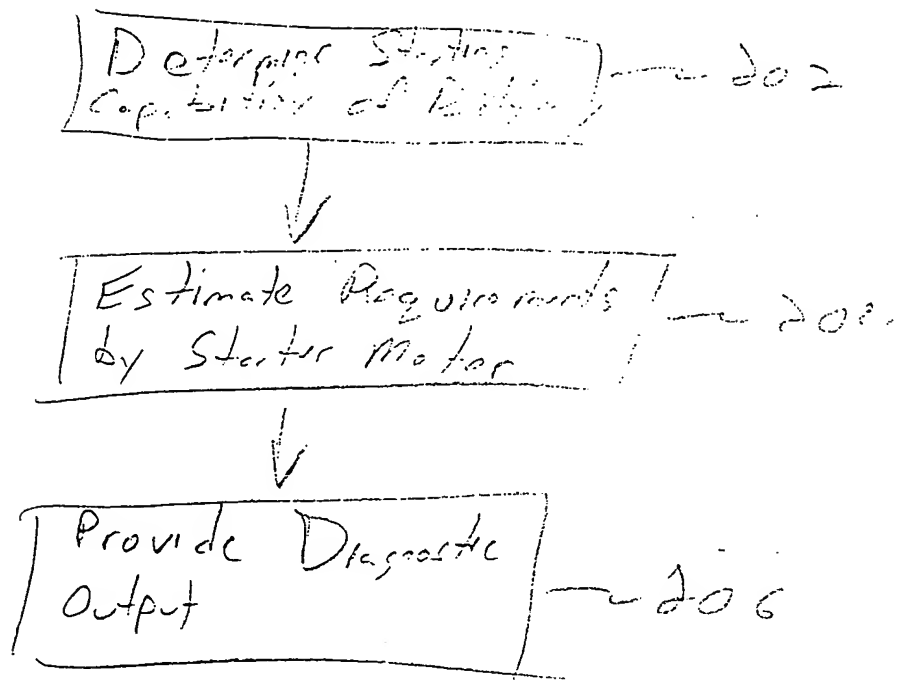 Determine Starting
of
202
Estimate Requirements
by Starter Motor
Provide Diagnostic
Output
206